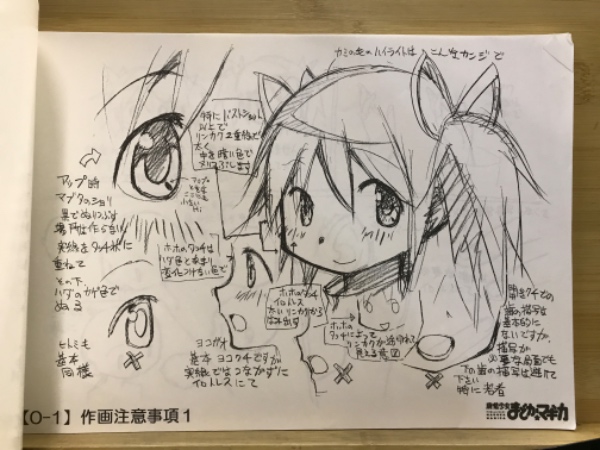 カミの毛のハイライトは こんなカンジで
特にバストショット
以上で
リンカク2重線で
太く
中を暗い色で
ヌリつぶします
アップ時
マブタのショリ
黒でぬりつぶす
実線をタッチ状に
重ねて
その下
ハダのカゲ色で
ぬる
ホホのタッチは
ハダ色とあまり
変化つけない色で
ホホのタッチ
イロトレス
ホホの
タッチによって
リンカクが途切れて
見える意図
セトミも
基本
同様
ヨコガオ
基本ヨコクチですが
実線ではつなかずに
イロトレスにて
開きクチでの
歯の描写は
基本的に
ないですが、
描写が
必要な局面でも
下の歯の描写は避けて
下さい
特に若者
【O-1】作画注意事項1
魔法少女
まどか☆マギカ